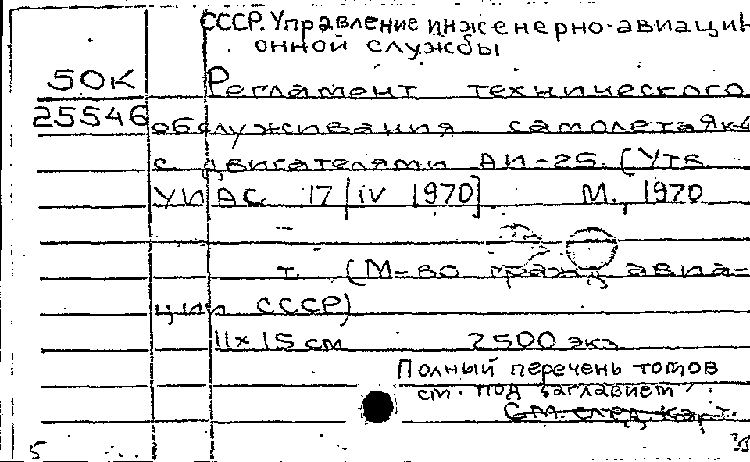 СССР. Управление инженерно-авиаци
онной службы
50К Регламент технического
25546 обслуживания самолета Як-4
с двигателями АИ-25. [Утв
УИАС 17/IV 1970]. М., 1970
т. (М-во гражд авиа-
ции СССР)
11х15 см 2500 экз
Полный перечень томов
см. под заглавием.
См. след карт.
5